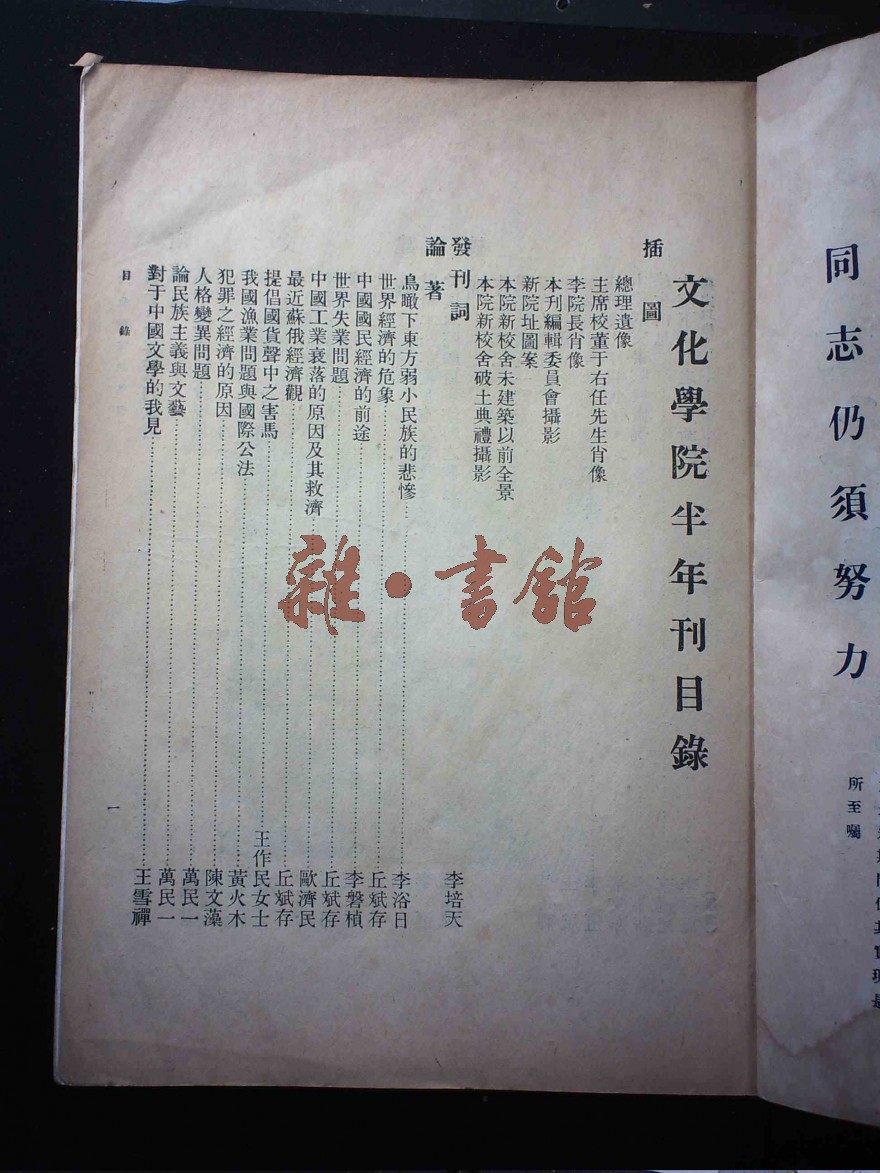 同志仍須努力
所至囑
文化學院半年刊目錄
插圖
總理遺像
主席校董于右任先生肖像
李院長肖像
本刋編輯委員會攝影
新院址圖案
本院新校舍未建築以前全景
本院新校舍破土典禮攝影
發刊詞 李培天
論著
鳥瞰下東方弱小民族的悲慘 李浴日
世界經濟的危象 丘斌存
中國國民經濟的前途 李磐楨
世界失業問題 丘斌存
中國工業衰落的原因及其救濟 歐濟民
最近蘇俄經濟觀 丘斌存
提倡國貨聲中之害馬 王作民女士
我國漁業問題與國際公法 黃火木
犯罪之經濟的原因 陳文藻
人格變異問題 萬民一
論民族主義與文藝 萬民一
對于中國文學的我見 王雪禪
目錄
一
雜·書館